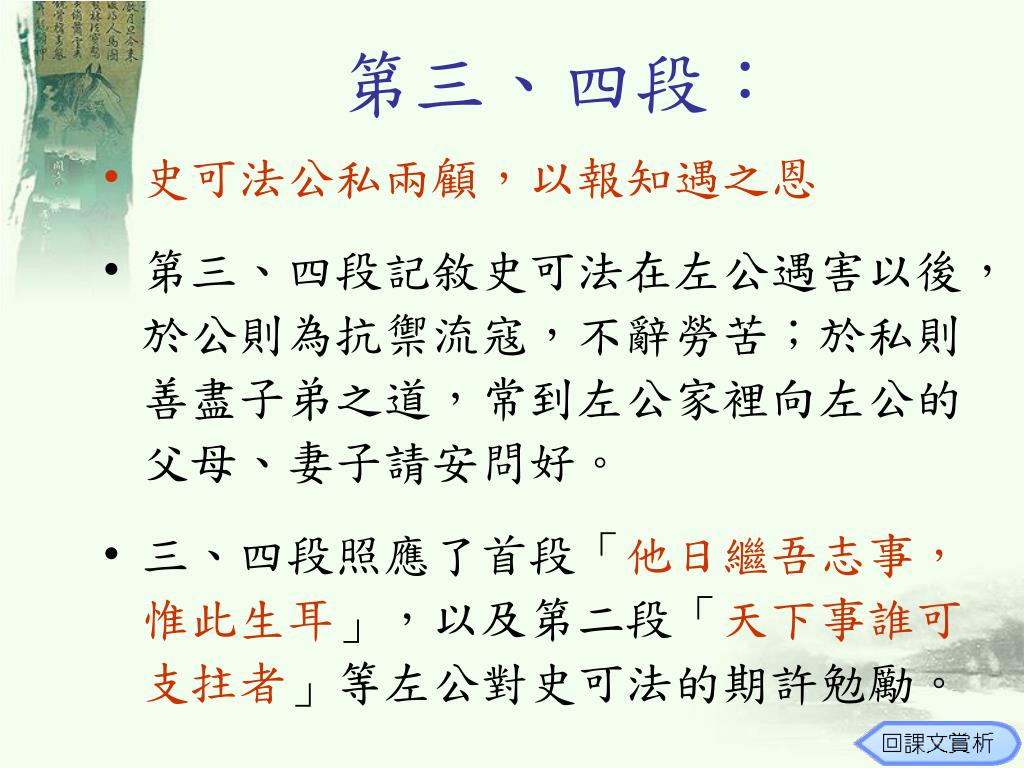 第三、四段：
• 史可法公私兩顧，以報知遇之恩
• 第三、四段記敘史可法在左公遇害以後，
於公則為抗禦流寇，不辭勞苦；於私則
善盡子弟之道，常到左公家裡向左公的
父母、妻子請安問好。
• 三、四段照應了首段「他日繼吾志事，
惟此生耳」，以及第二段「天下事誰可
支拄者」等左公對史可法的期許勉勵。
回課文賞析